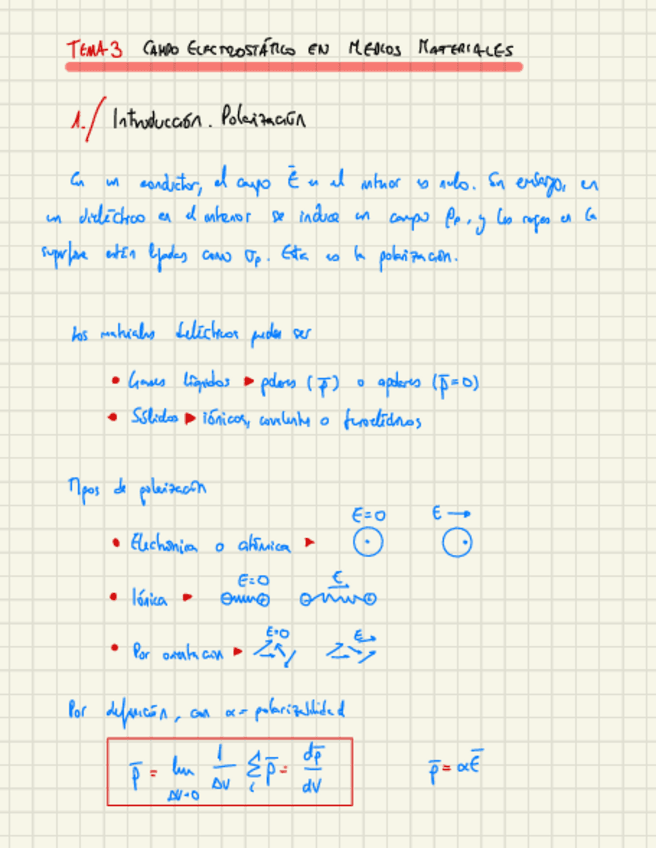 TEMA 3 CAMPO ELECTROSTÁTICO EN MEDIOS MATERIALES
1./ Introducción. Polarización
En un conductor, el campo E̅ en el interior es nulo. Sin embargo, en
un dieléctrico en el interior se induce un campo ρp, y las cargas en la
superficie están ligadas como σp. Esta es la polarización.
Los materiales dieléctricos pueden ser
• Gases líquidos ▶ polares (p̅) o apolares (p̅=0)
• Sólidos ▶ iónicos, covalentes o ferroeléctricos
Tipos de polarización
E=0 E →
• Electrónica o atómica ▶
E=0 E
• Iónica ▶
E=0 E
• Por orientación ▶
Por definición, con α= polarizabilidad
p̅ = lim ΔV→0 1/ΔV Σi p̅ = dp̅/dV p̅ = αE̅